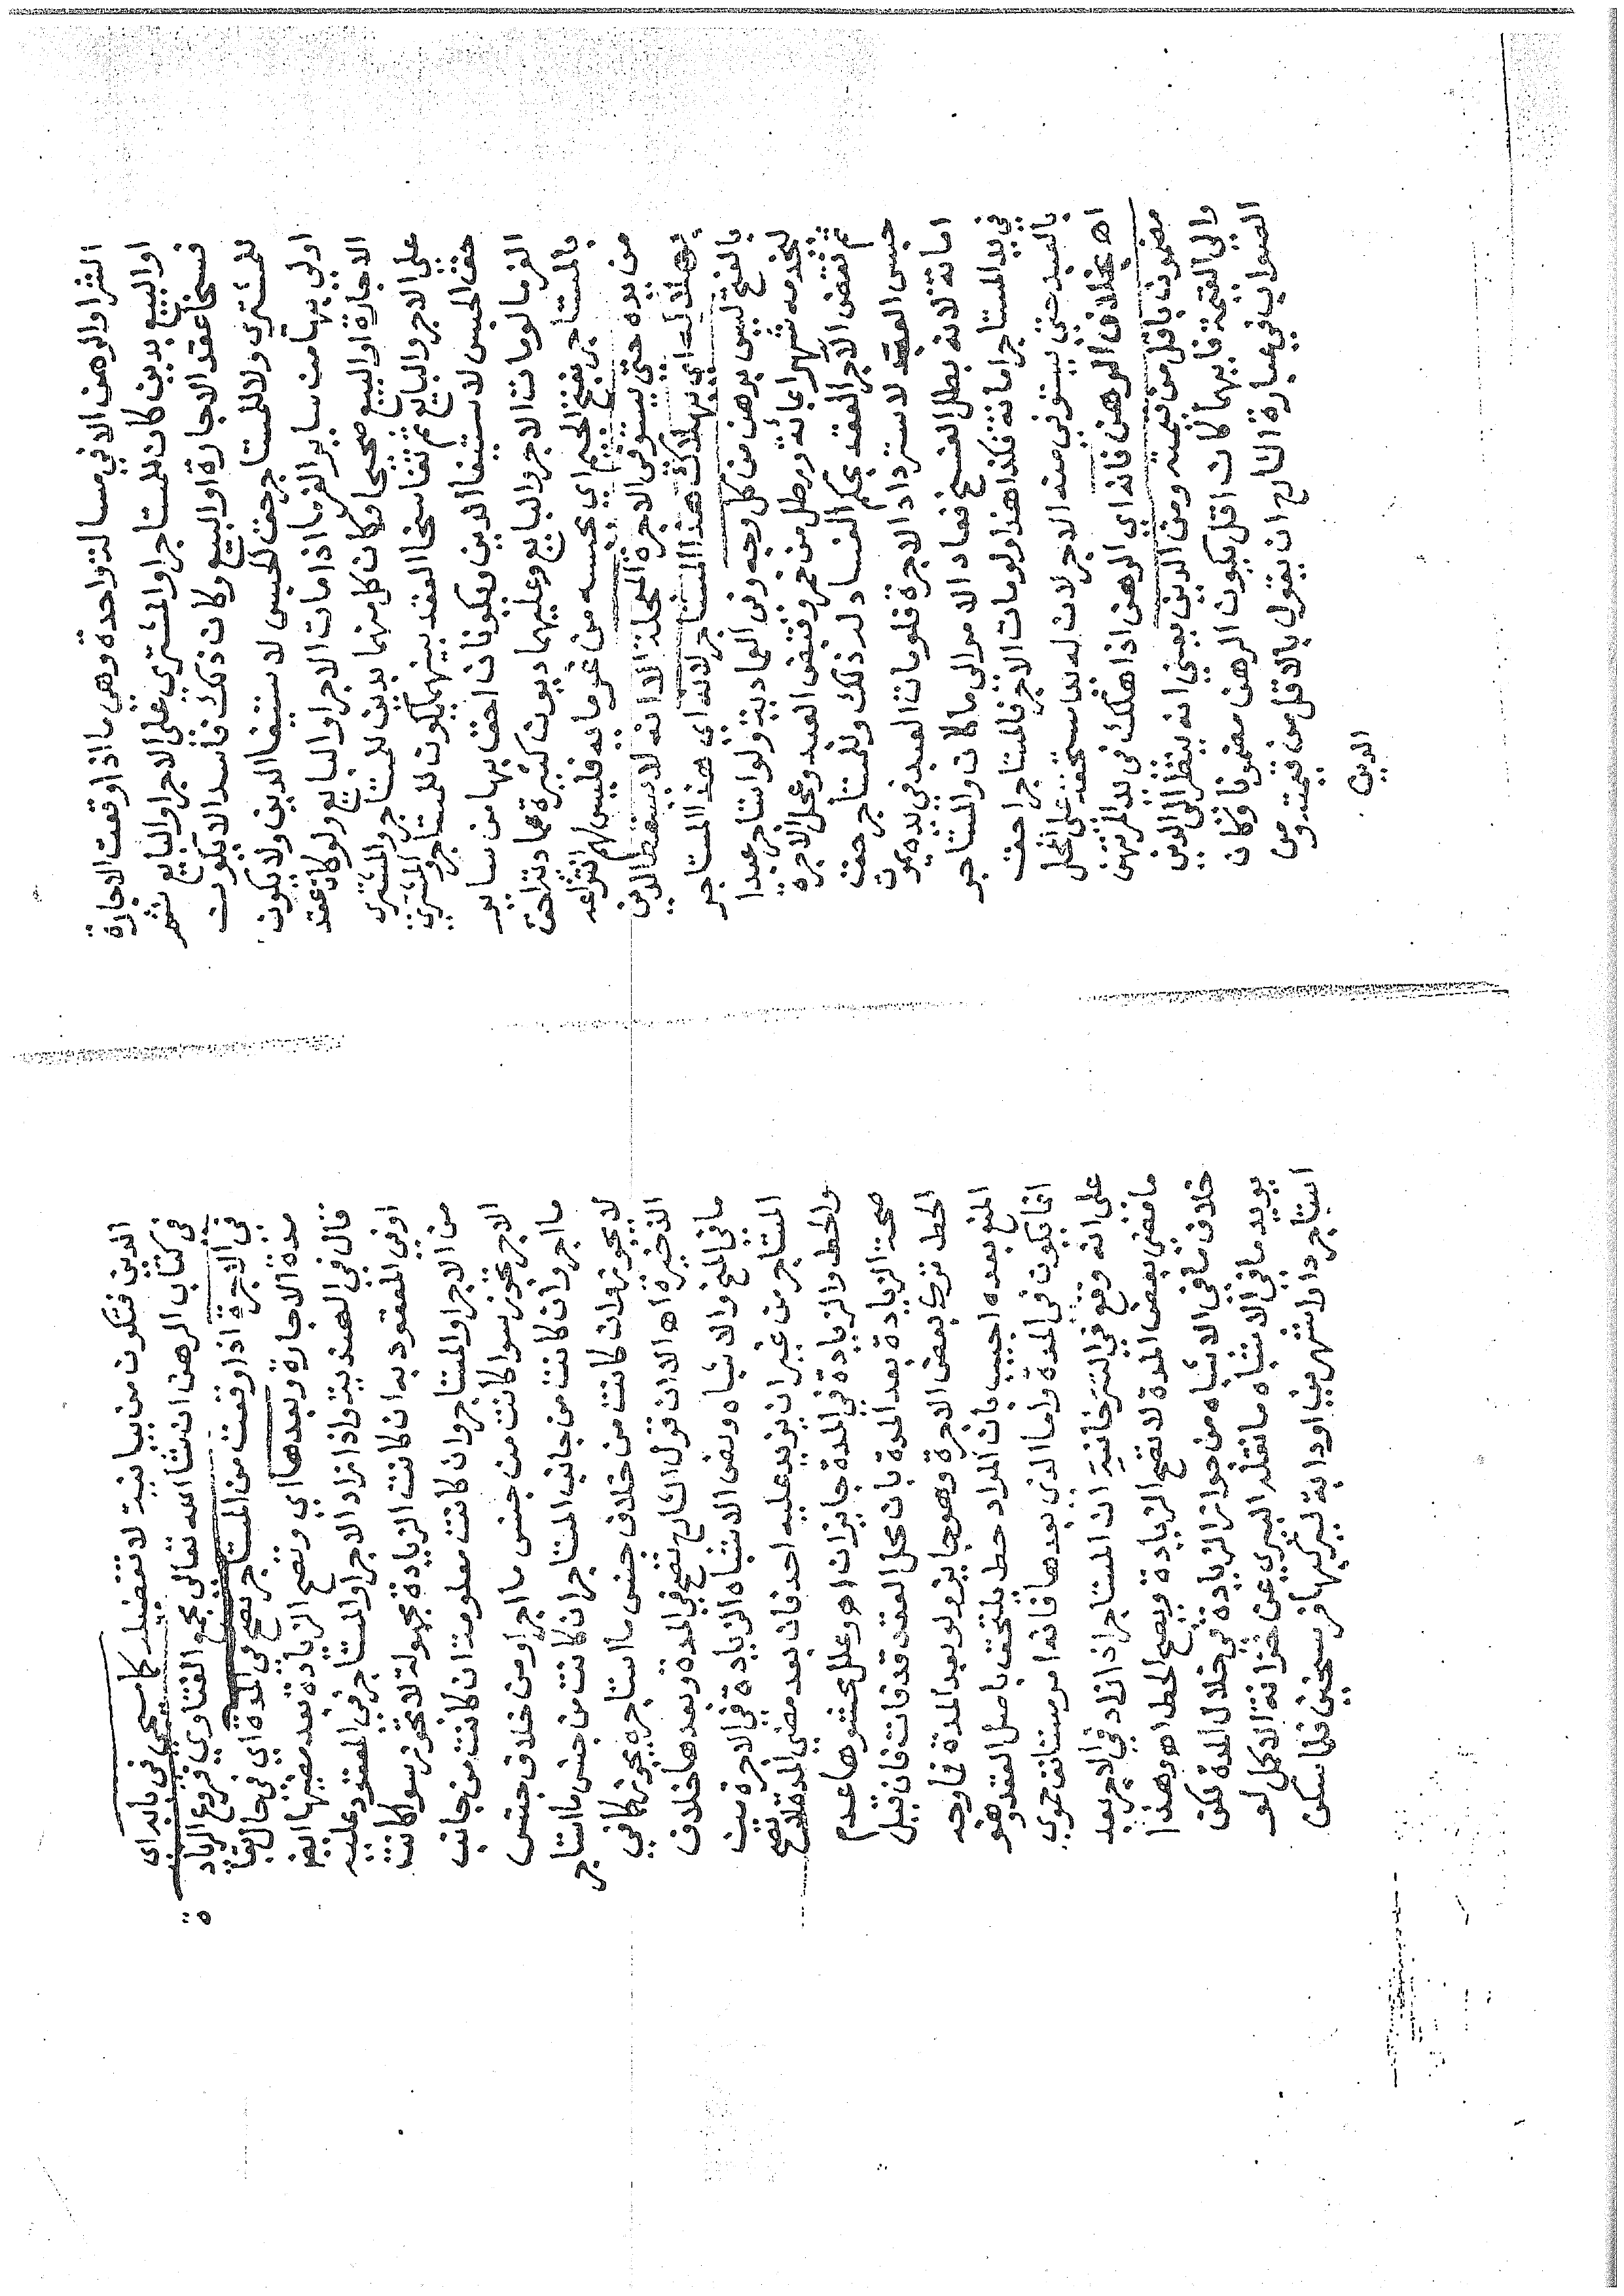 الشرا والرهن الا في مسالة واحدة وهي ما اذا وقعت الاجارة
او البيع بدين كان للمستاجر او المشتري على الاجر او البايع ثم
فسخا عقد الاجارة او البيع وكان ذلك فاسدا لا يكون
للمشتري ولا للمستاجر حق الحبس لاستيفا الدين ولا يكون
اولى بها من ساير الغرما اذا مات الاجر او البايع ولو كان عقد
الاجارة او البيع صحيحا وكان كل منهما بدين للمستاجر والمشتري
على الاجر والبايع ثم تفاسخا العقد بينهما يكون للمستاجر والمشتري
حق الحبس لاستيفا الدين ويكونان احق بها من ساير
الغرما لو مات الاجر والبايع وعليهما ديون كثيرة عمادية احق
بالمستاجر بفتح الجيم اي بحبسه من غرمائه فليس لهم انتزاعه
من يده حتى يستوفي الاجرة المعجلة الا انه لا يسقط الدين
بهلاكه اي بهلاك هذا المستاجر لانه اي هذا المستاجر
بالفتح ليس برهن من كل وجه وفي العمادية ولو استاجر عبدا
ليخدمه شهرا بمائة ورطل من خمر وقبض العبد وعجل الاجرة
ثم نقض الاجر العقد بحكم الفساد له ذلك وللمستاجر حق
حبس العبد لاسترداد الاجرة فلو مات العبد في يده يموت
امانة لانه بطل الفسخ فعاد الامر الى ما كان والمستاجر
في يد المستاجر امانة فكذا هذا ولو مات الاجر فالمستاجر احق
بالعبد حتى يستوفي منه الاجر لان له بما سحقه على المحل
اه بخلاف الرهن فانه اي الرهن اذا هلك في يد المرتهن
مضمون باقل من قيمته ومن الدين يعني انه ينظر الى الدين
والى القيمة فايهما كان اقل يكون الرهن مضمونا فكان
الصواب في عبارة الشارح ان يقول بالاقل من قيمته ومن
الدين
الدين فتكون من بيانية لا تفضيلية كما سيجي في بابه اي
في كتاب الرهن ان شا الله تعالى مجمع الفتاوي فروع الزيادة
في الاجرة اذا وقعت من المستاجر يصح في المدة اي في حال بقا
مدة الاجارة وبعدها اي وتصح الزيادة بعد مضيها ايضا
قال في الهندية واذا زاد الاجر او المستاجر في المعقود عليه
او في المعقود به ان كانت الزيادة مجهولة لا تجوز سوا كانت
من الاجر او المستاجر وان كانت معلومة ان كانت من جانب
الاجر تجوز سوا كانت من جنس ما اجر او من خلاف جنس
ما اجر وان كانت من جانب المستاجر ان كانت من جنس ما استاجر
لا يجوز وان كانت من خلاف جنس ما استاجره يجوز كما في
الذخيرة اه الا ان قول الشارح تصح في المدة وبعدها خلاف
ما في المنح والاشباه ونص الاشباه الزيادة في الاجرة من
المستاجر من غير ان يزيد عليه احد فان بعد مضي المدة لا تصح
والحط والزيادة في المدة جايزان اه وعلل محشوها عدم
صحة الزيادة بعد المدة بان محل العقد قد فات فان قيل
الحط ترك بعض الاجرة وهو جايز ولو بعد المدة فما وجه
المنع بعده اجيب بان المراد حط يلتحق باصل العقد وهو
انما يكون في المدة واما الذي بعدها فانه امر مستانف حموي
على انه وقع في التترخانية ان المستاجر اذا زاد في الاجر بعد
ما مضى بعض المدة لا تصح الزيادة ويصح الحط اه وهذا
خلاف ما في الاشباه من جواز الزيادة في خلال المدة لكن
يويد ما في الاشباه ما نقله البيري عن خزانة الاكمل لو
استاجر دارا شهرين او دابة ليركبها فرسخين فلما سكن